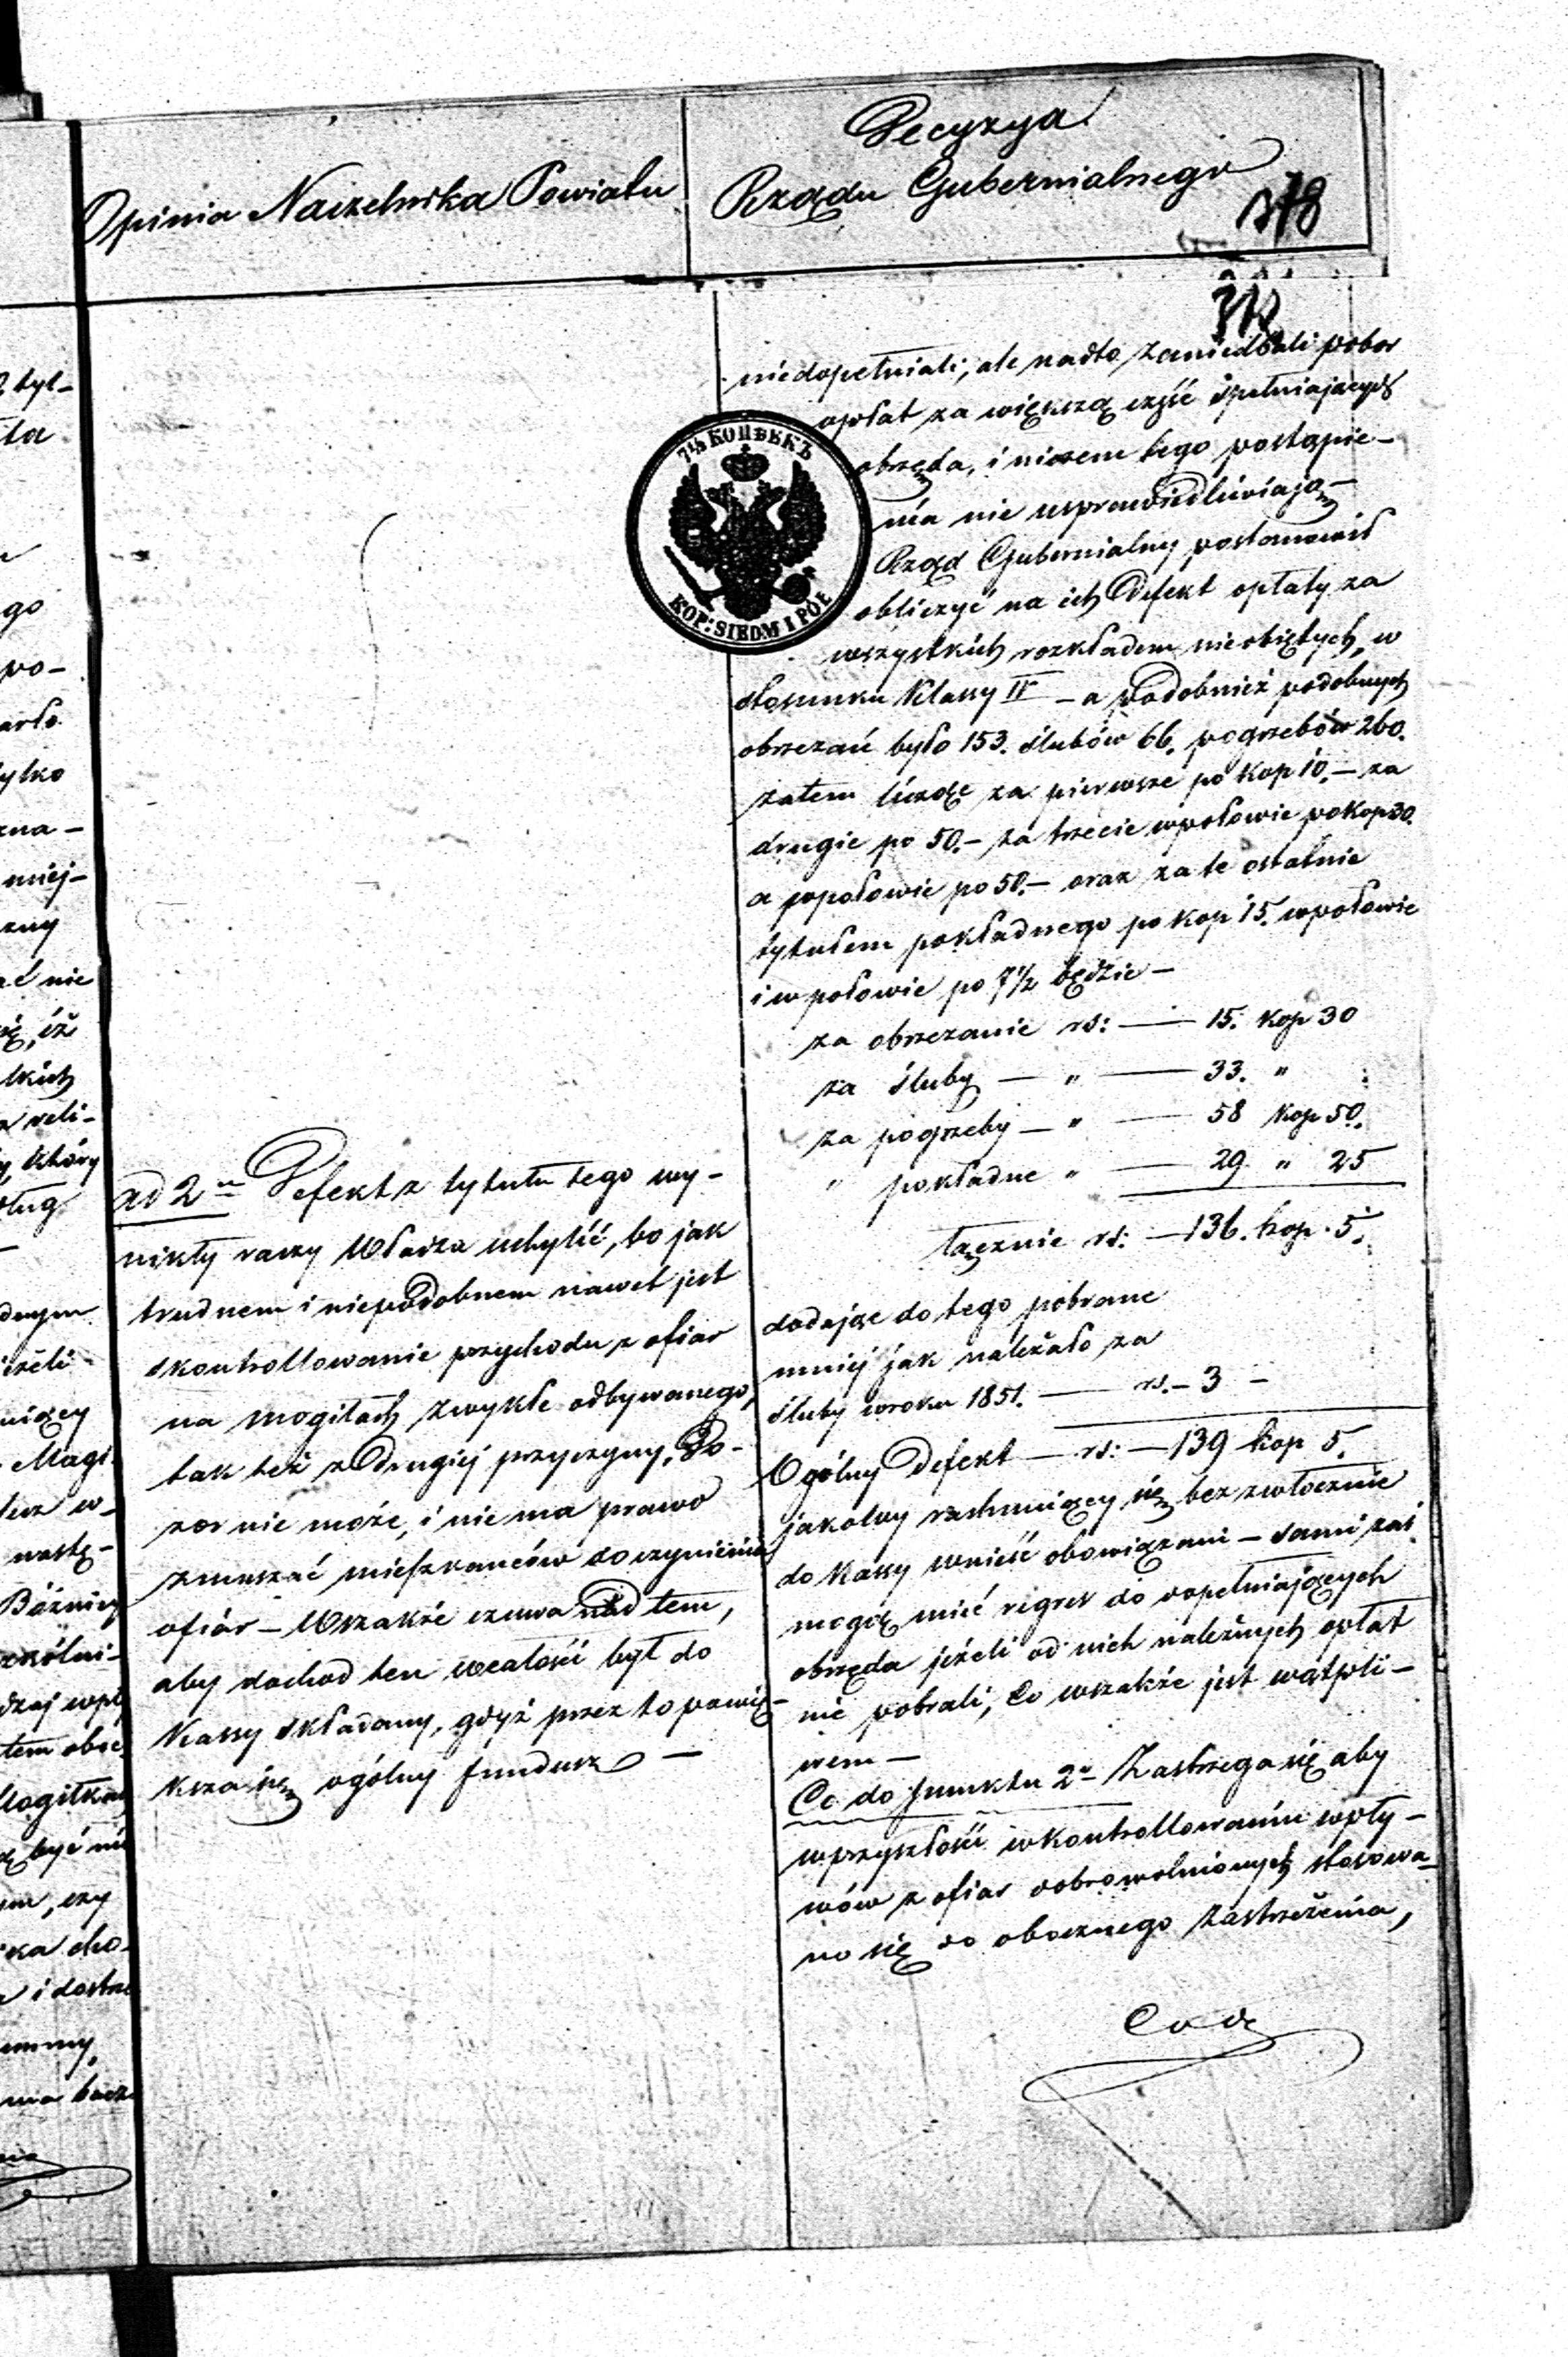 Opinia Naczelnika Powiatu
ad 2m Defekt z tytułu tego wy-
nikły raczy Władza uchylić, bo jak
trudnem i niepodobnem nawet jest
skontrollowanie przychodu z ofiar
na mogiłach zwykle odbywanego,
tak też z drugiej przyczyny, Do-
zor nie może, i nie ma prawo
zmuszać mieszkanców do czynienia
ofiar – Wszakże czuwa nad tem,
aby dochod ten wcałości był do
Kassy składany, gdyż przez to powię-
ksza się ogólny fundusz –
Decyzya
Rządu Gubernialnego
318
niedopełniali, ale nadto zaniedbali pobor
opłat za większą część spełniających
obrzęda, i niczem tego postąpie-
nia nie usprawiedliwiają –
Rząd Gubernialny postanowił
obliczyć na ich Defekt opłaty za
wszystkich rozkładem nieobiętych, w
stosunku Klassy IV – a podobnież podobnych
obrzezań było 153. ślubów 66. pogrzebów 260.
zatem licząc za pierwsze po kop 10. – za
drugie po 50. – za trzecie wpołowie po kop 30.
a wpołowie po 50. – oraz za te ostatnie
tytułem pokładnego po kop 15. wpołowie
i w połowie po 7½ będzie –
za obrzezanie rs: — 15. kop 30
za śluby — " — 33. "
za pogrzeby — " — 58 kop 50.
" pokładne " — 29 " 25
łącznie rs: — 136. kop. 5.
dodając do tego pobrane
mniej jak należało za
śluby wroku 1851. — rs. – 3 –
Ogólny Defekt — rs: — 139 kop 5.
jakowy rachmiący się bezzwłocznie
do Kassy wnieść obowiązani – sami zaś
mogą mieć regres do dopełniających
obrzęda jeżeli od nich należnych opłat
nie pobrali, co wszakże jest wątpli-
wem –
Co do punktu 2o Zastrzega się aby
wprzyszłości wkontrollowaniu wpły-
wów z ofiar dobrowolnionych stosowa-
no się do obocznego zastrzeżenia,
7½ КОПѢЕКЪ
KOP: SIEDM I PÓŁ
tyl-
ta
go
po-
arło
tylko
zna-
miej-
nie
iż
reli-
który
Magi
w-
nastę-
Bóżnicy
być
czy